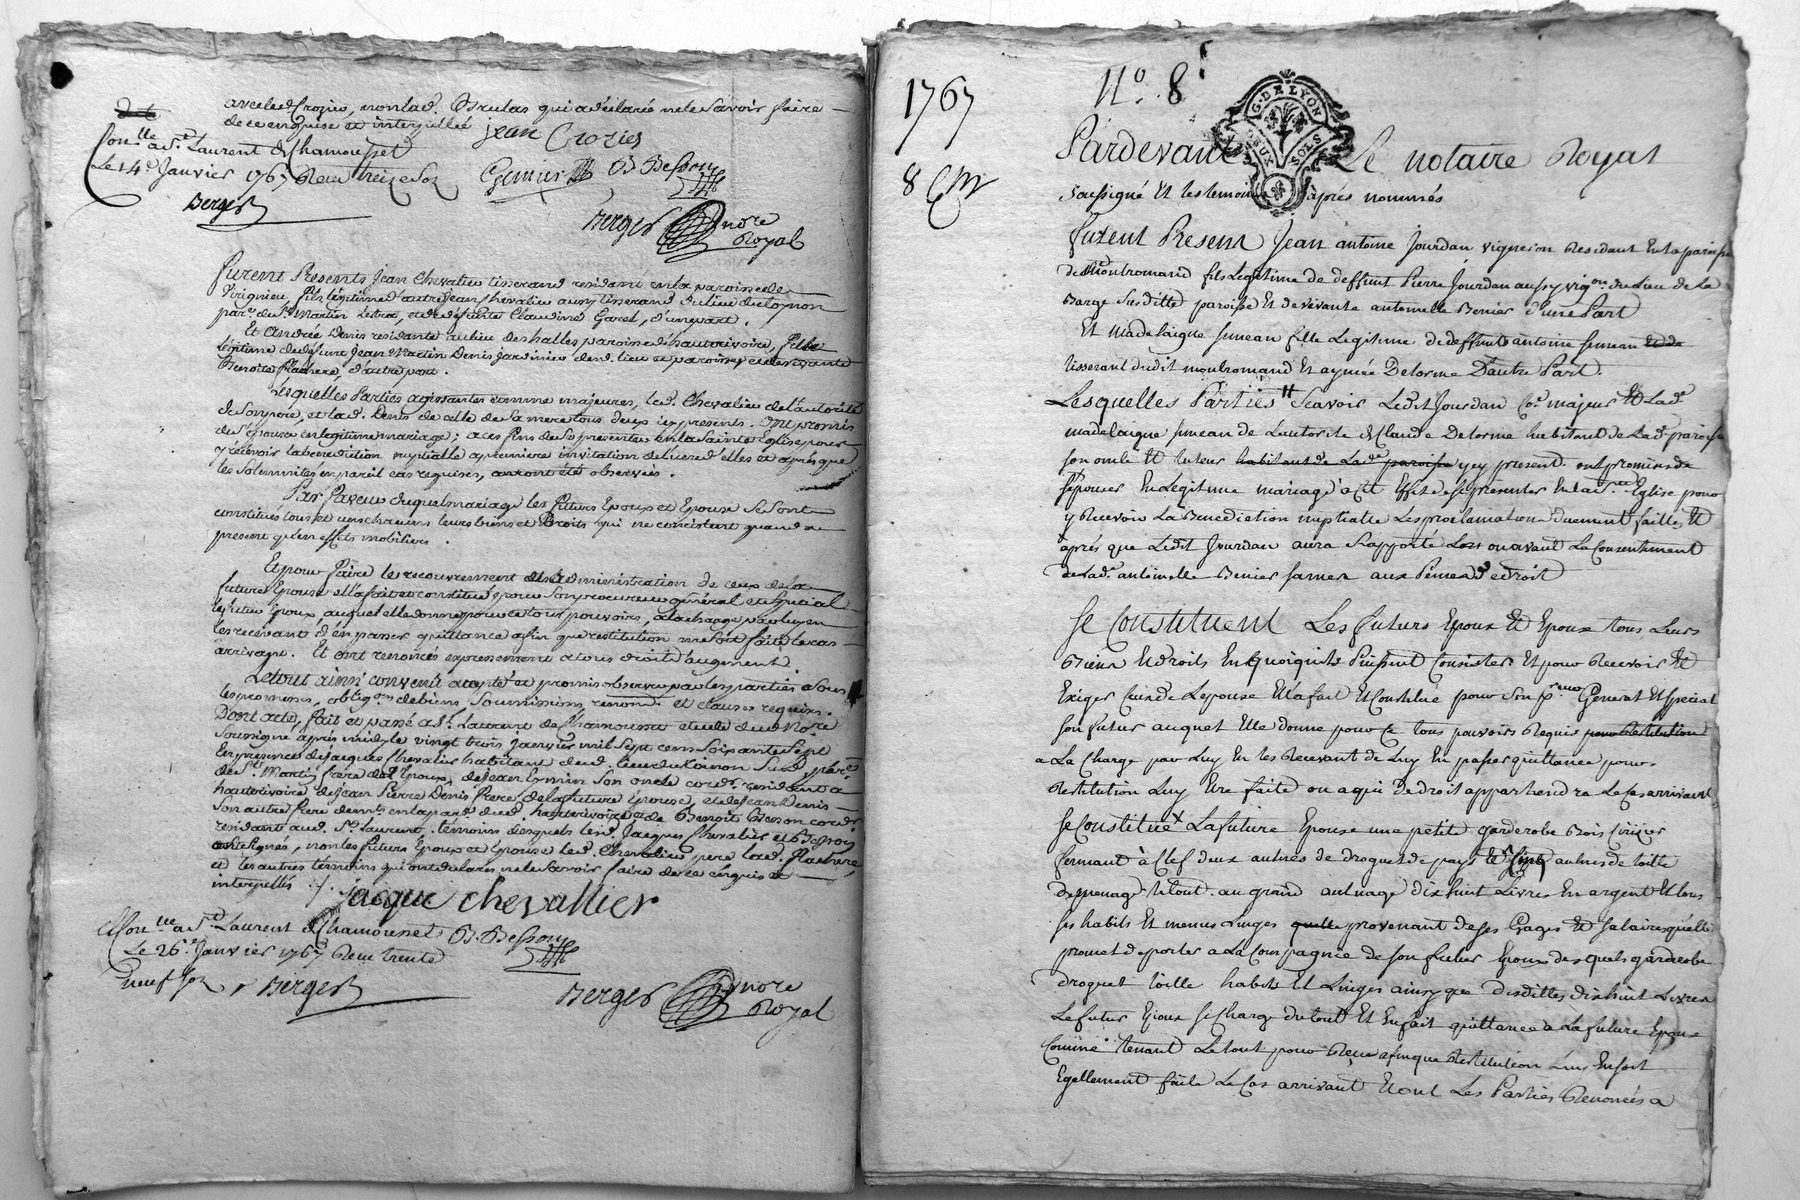 avec led. Crozier, non lad. Brulas qui a déclarés ne le savoir faire
de ce enquise et interpellée
jean Crozier
Con.lle a St. Laurent de Chamousset
Le 14e. Janvier 1767 Reçu treize sols
B Besson
Berger
Berger
nore
Royal
Furent Presents Jean Chevalier tisserand residant en la paroisse de
Virignieu, fils légitime d'autre Jean Chevalier aussy tisserand du lieu de
par.e de St. Martin Letra, et de défunte Claudine Garel, d'une part.
Et Andrée Denis residante au lieu des halles paroisse d'hauterivoire, fille
légitime de défunt Jean Martin Denis Jardinier dud. lieu et paroisse et de vivante
Benoite flachere, d'autre part.
Lesquelles Parties agissantes comme majeures, led. Chevalier de l'autorité
de son pere, et lad. Denis de celle de sa mere tous deux icy presents. Ont promis
de s'epouser en legitime mariage; a ces fins de se presenter en la Sainte Eglise pour
y recevoir la benediction nuptialle a premiere invitation de l'une d'elles et après que
les solemnités en pareil cas requises, auront été observées.
Par faveur duquel mariage les futurs Epoux et Epouse se sont
constitués tous et uns chacuns leurs biens et Droits qui ne consistent quand a
present qu'en effets mobiliers.
Et pour faire le recouvrement et administration de ceux de la
future Epouse elle a fait et constitué pour son procureur général et special
le futur Epoux, auquel elle donne pour ce tous pouvoirs, a la charge par luy en
les recevant d'en passer quittance afin que restitution en soit faite le cas
arrivant. Et ont renoncés expressement a tous droits d'augment.
Le tout ainsi convenu accepté et promis observer par les parties a sous
les promesses, oblig.ons de biens soumissions, renon.ons et clauses requises.
Dont acte, fait et passé a St. Laurent de Chamousset etude du No.re
Soussigné après midy le vingt trois Janvier mil sept cent soixante sept
En presence de Jacques Chevalier habitant aud. lieu de Susd. par.e
de St. Martin frere dud. Epoux, de Jean son oncle cord.r residant a
hauterivoire de Jean Pierre Denis frere de la future Epouse, et de Jean Denis
son autre frere dem.ts en la par.e dud. hauterivoire et de Benoit Besson cord.r
residant aud. St. Laurent. témoins desquels led. Jacques Chevalier et B. Besson
ont signés, non les futurs Epoux et Epouse led. Chevalier pere lad. flachere,
et les autres témoins qui ont déclarés ne le savoir faire de ce enquis et
interpellés ./.
jacque chevallier
Con.lle a St. Laurent de Chamousset
B. Besson
Le 26e. Janvier 1767 Reçu trente
neuf sols
Berger
Berger
nore
Royal
1767
No. 8
G. DE LYON
DEUX SOLS
8
Pardevant Le notaire Royal
soussigné Et les temoins après nommés
furent Present Jean antoine Jourdan vigneron Residant En la paroisse
de Montromand fils Legitime de deffunt Pierre Jourdan aussy vig.on du Lieu de La
Barge Susditte paroisse Et de vivante antoinette Benier d'une Part
Et madelaigne simean fille Legitime de deffunt antoine simean et de
tisserant dudit montromand Et aymée Delorme D'autre Part.
Lesquelles Parties Scavoir Ledit Jourdan Co.e majeur Et Lad.e
madelaigne simean de Lautorite de Claude Delorme habitant de Lad. paroisse
son oncle Et tuteur habitant de Lad.e paroisse y cy present. ont promis de
sepouser En Legitime mariage a cet Effet de se presenter En La S.te Eglise pour
y Recevoir La Benediction nuptialle Les proclamations duement faittes Et
après que Ledit Jourdan aura Rapporté Lors ou avant Le Consentement
de Lad.e antoinette Benier sa mere aux
Se Constituent Les futurs Epoux Et Epouse tous Leurs
Biens Et droits En quoiquils Puissent Consister Et pour Recevoir Et
Exiger Ceux de Lepouse Elle a fait Et Constitué pour son p.reur General Et special
son futur auquel Elle donne pour Ce tous pouvoirs Requis pour Restitution
a La Charge par Luy En les Recevant de Luy En passer quittance pour
Restitution Luy Etre faite ou a qui De droit appartiendra Le Cas arrivant
Se Constitue La future Epouse une petit garderobe Bois Cerizier
fermant à Clef deux aulnes de droguet de pays Et cinq aulnes de toille
de menage Le tout au grand aulnage dix huit Livres En argent Et tous
ses habits Et menus Linges quelle provenant de ses Gages Et salaires quelle
promet deporter a La Compagnie de son futur Epoux desquels garderobe
droguet toille habits Et Linges ainsy que desdittes dix huit Livres
Le futur Epoux se Charge du tout Et En fait quittance a La future Epouse
Comme tenant Le tout pour Reçu afin que Restitution Luy En soit
Egallement faite Le Cas arrivant Et ont Les Parties Renoncés a